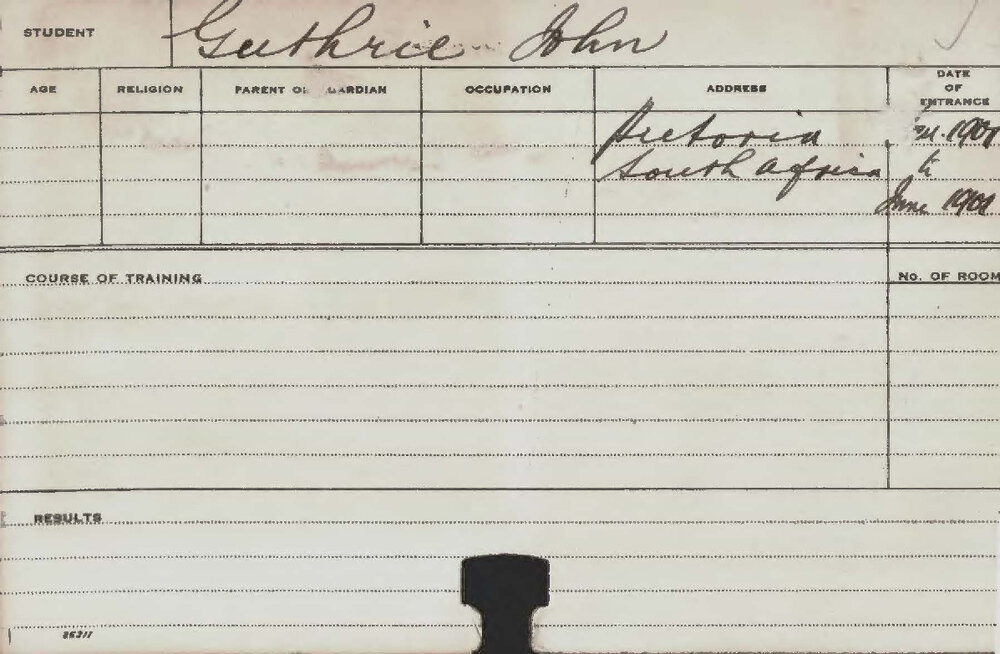 STUDENT Guthrie John
AGE RELIGION PARENT OR GUARDIAN OCCUPATION ADDRESS DATE OF ENTRANCE
Pretoria
South Africa to
June 1901
COURSE OF TRAINING No. OF ROOM
RESULTS